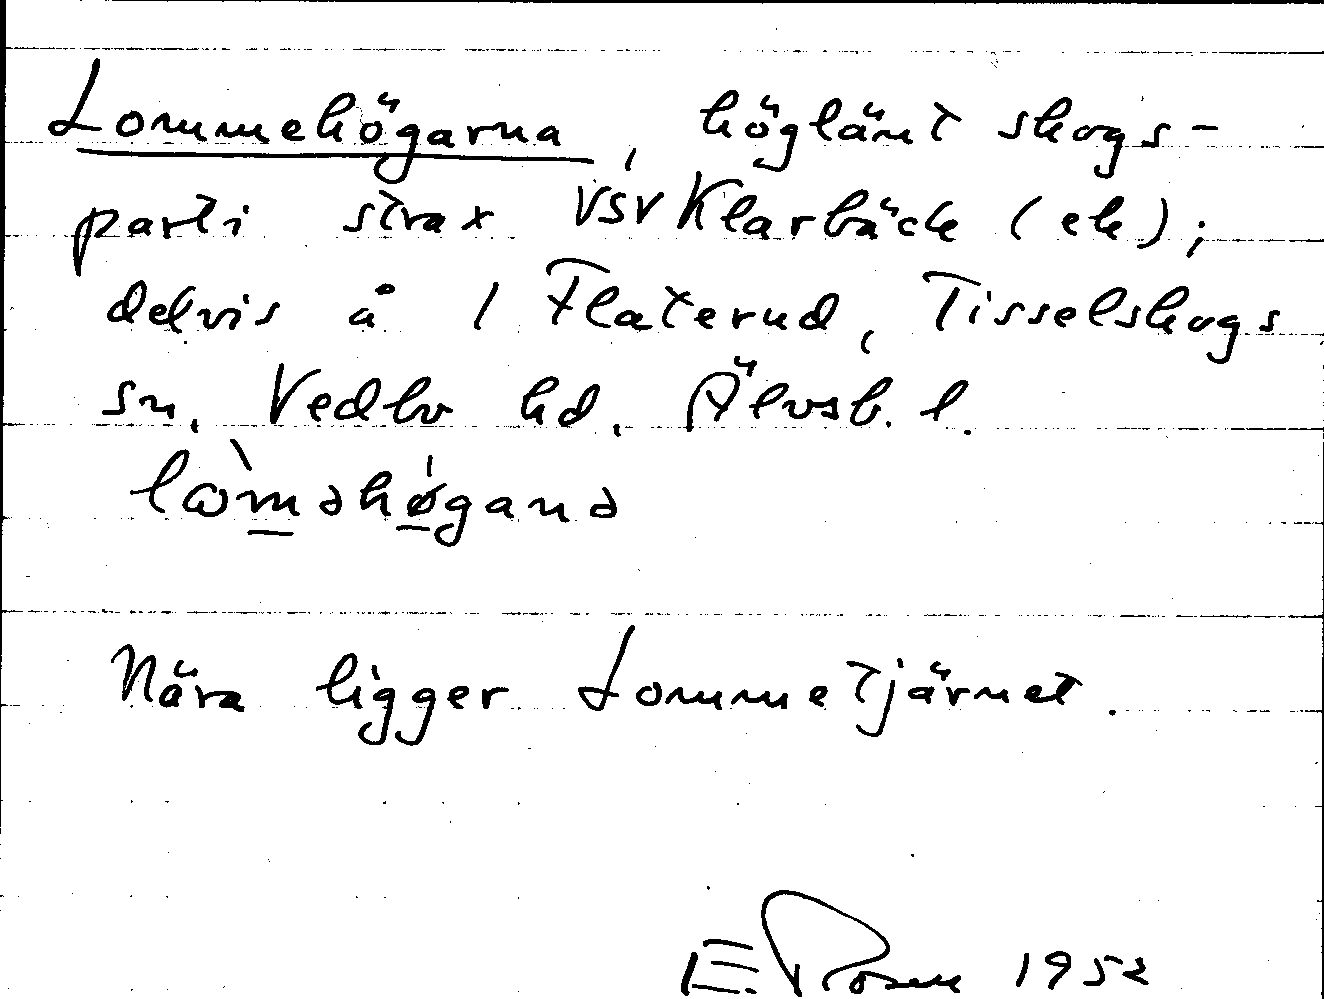 Lommehögarna, höglänt skogs-
parti strax VSV Klarbäck (ek);
delvis å 1 Flaterud, Tisselskogs
sn, Vedbo hd, Älvsb. l.
Nära ligger Lommetjärnet.
E. Rosen 1952